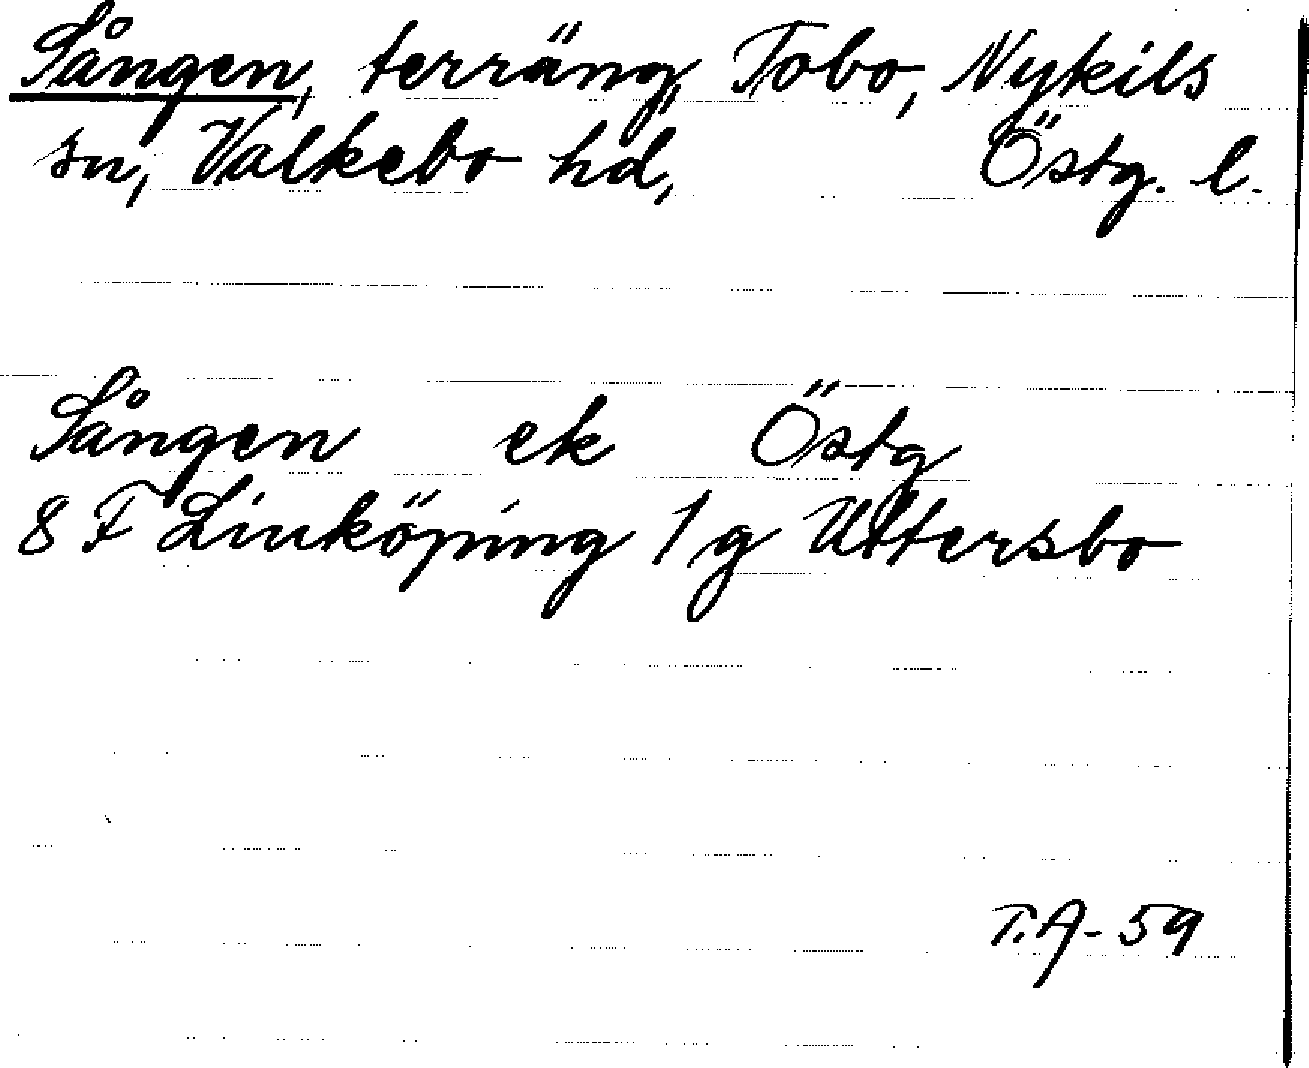 Sången, terräng, Tobo, Nykils
sn, Valkebo hd, Östg. l.
Sången ek Östg
8 F Linköping 1 g Uttersbo
T.A-59